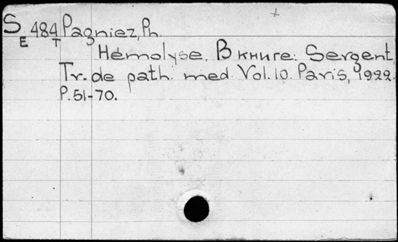 S E 484 T Pagniez, Ph.
Hémolyse. В книге: Sergent,
Tr. de path. med. Vol. 10. Paris, 1922.
P. 51-70.